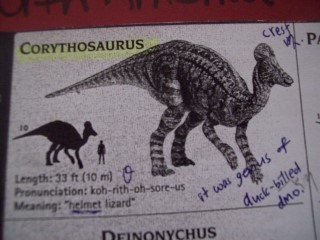 CORYTHOSAURUS
crest
PA
10
Length: 33 ft (10 m)
Pronunciation: koh-rith-oh-sore-us
Meaning: "helmet lizard"
it was genus of
duck-billed
dino.
DEINONYCHUS